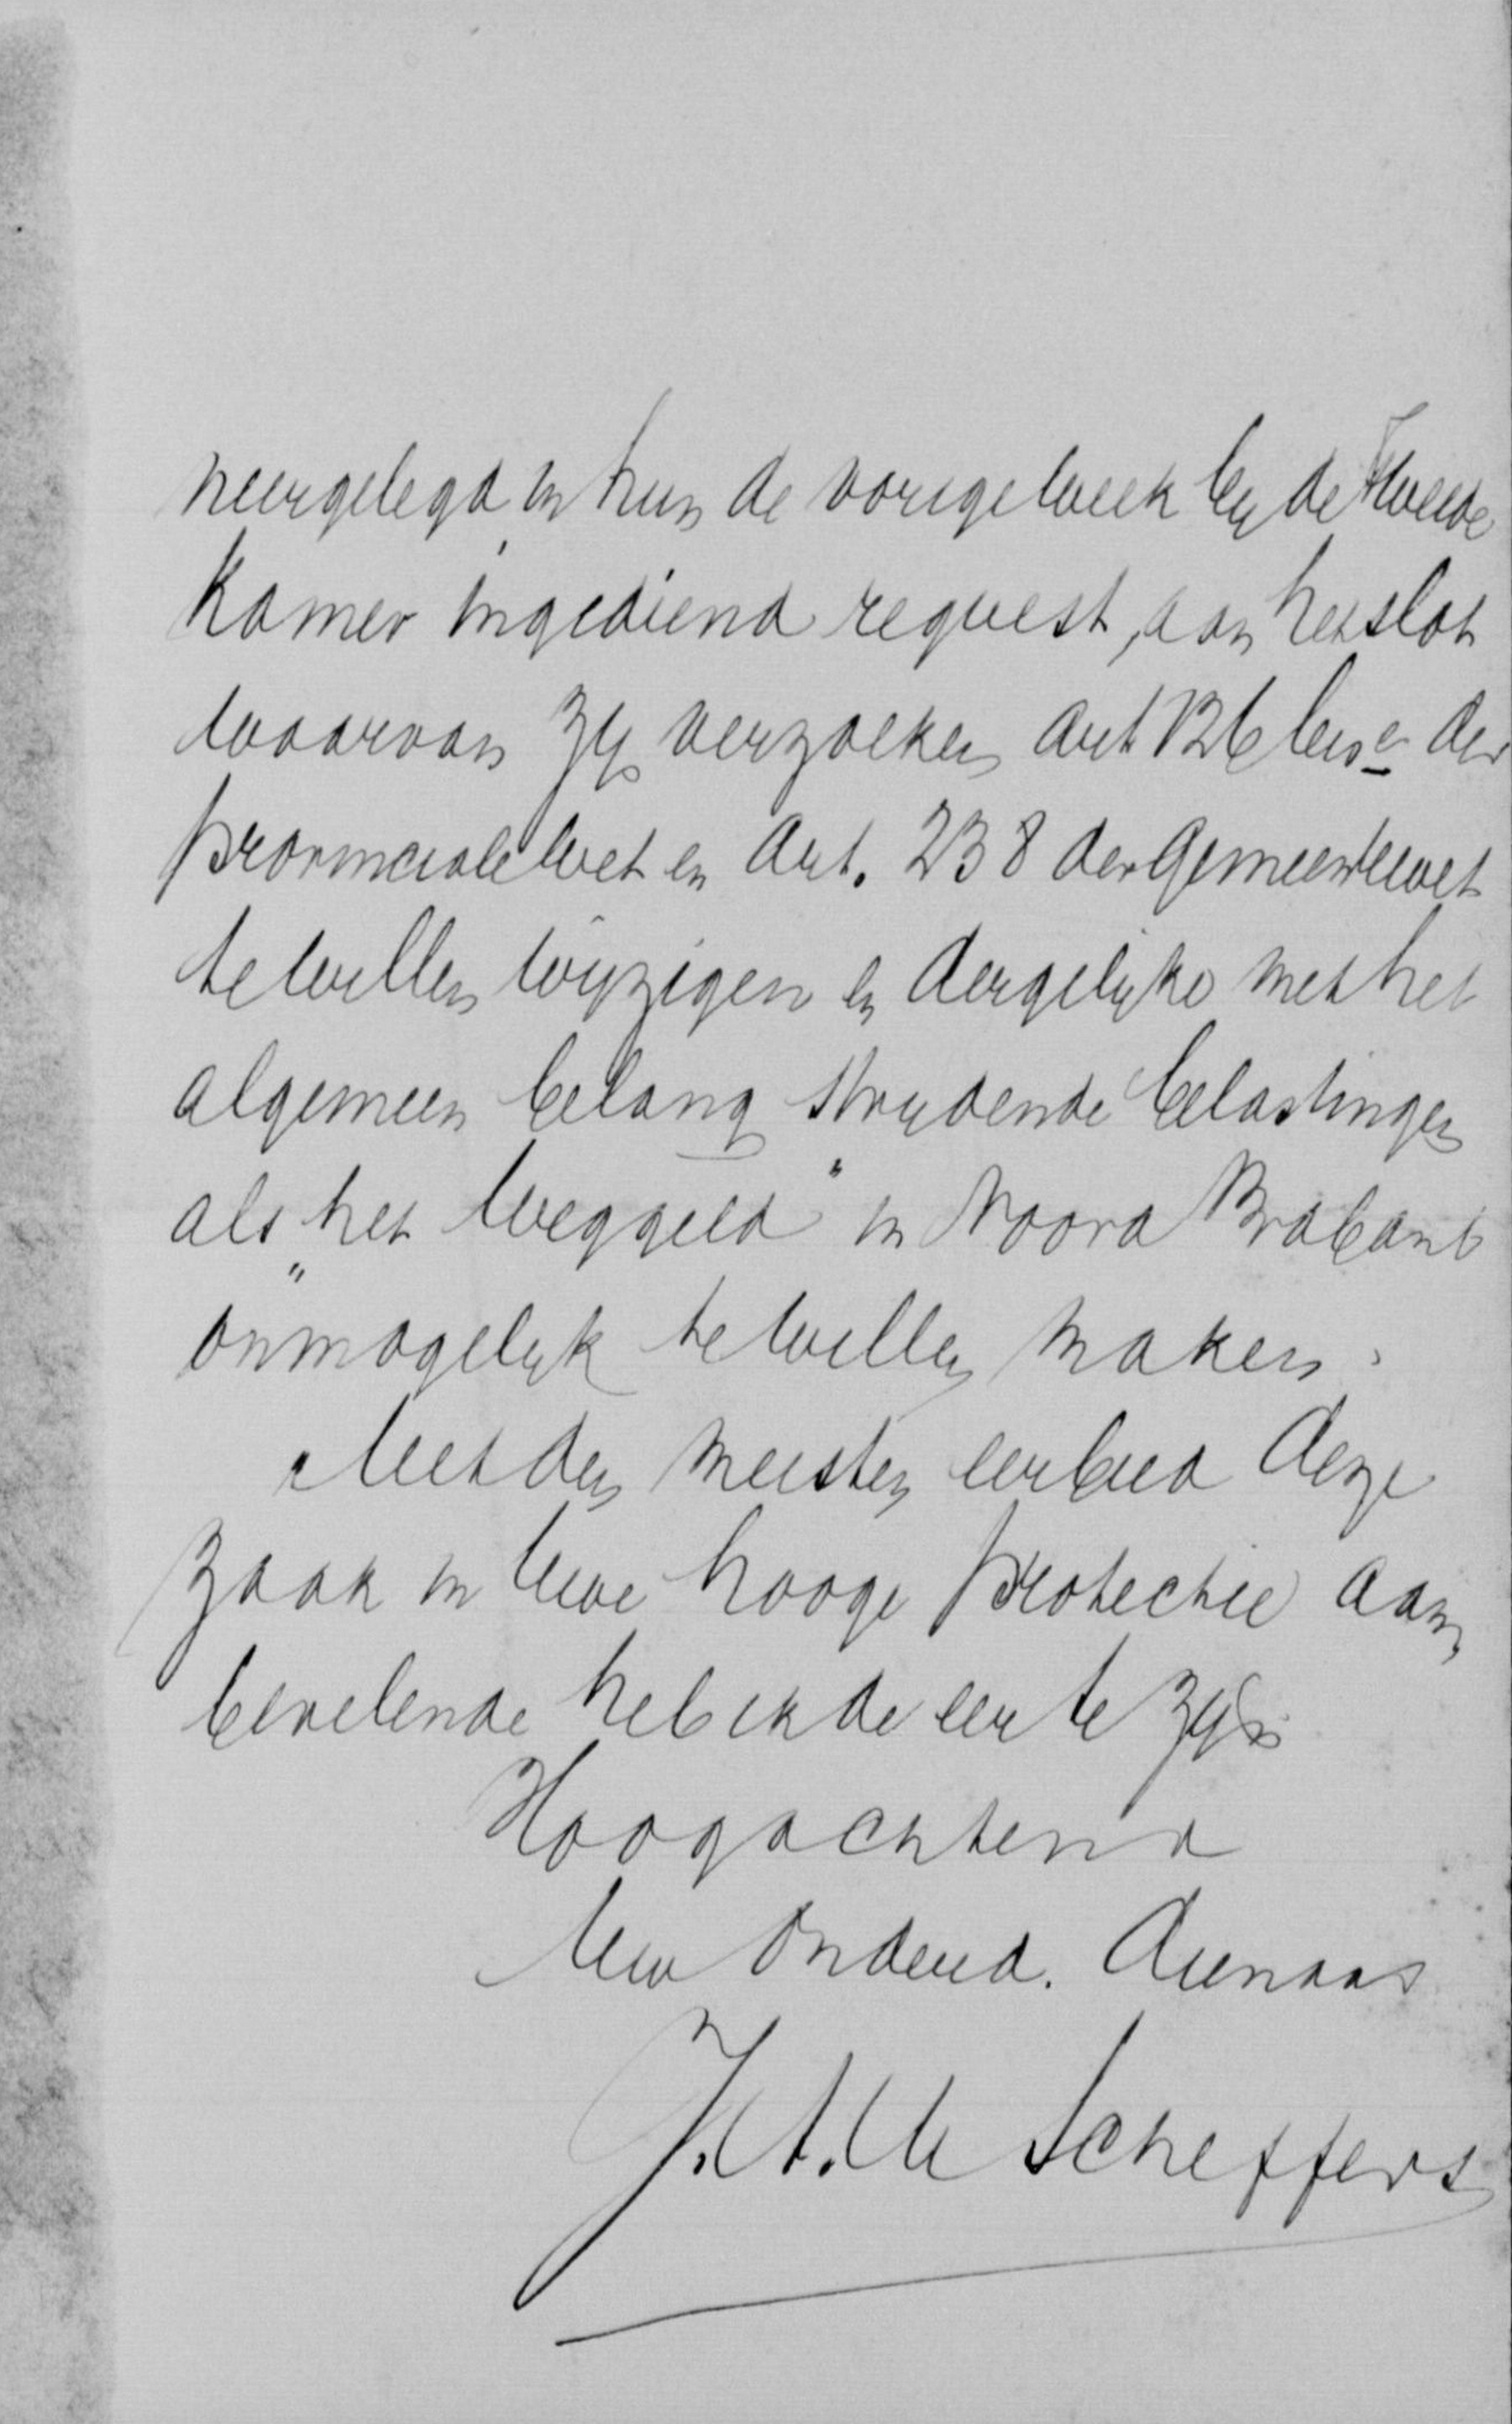 neergelegd in hun de vorige week by de Tweede
Kamer ingediend request, aan het slot
waarvan zy verzoeken art 126 der
provinciale wet en Art. 238 der Gemeentewet
te willen wijzigen en dergelyke met het
algemeen belang strydende belastingen
als „het weggeld" in Noord Brabant
onmogelyk te willen maken.
Met den meesten eerbied deze
zaak in Uwe hooge protectie aan
bevelende heb ik de eer te zyn
Hoogachtend
Uw onderd. Dienaar
J. A. M Scheffers